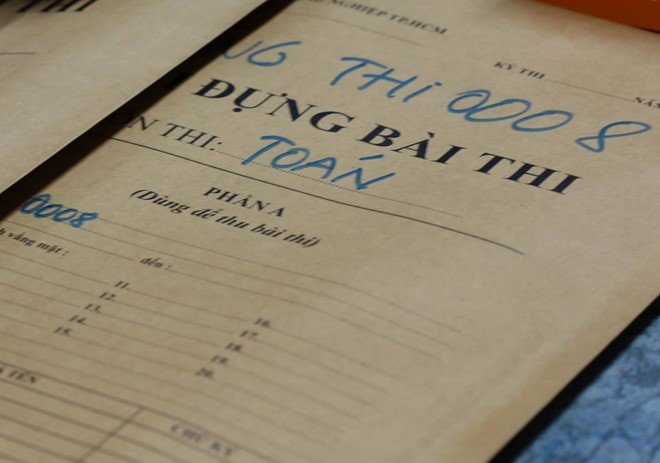 THI
NGHIỆP TP.HCM
KỲ THI
NG THI 0008
ĐỰNG BÀI THI
THI: TOÁN
PHẦN A
(Dùng để thu bài thi)
0008
vắng mặt: đến:
11. 16.
12. 17.
13. 18.
14. 19.
15. 20.
TÊN
CHỮ KÝ